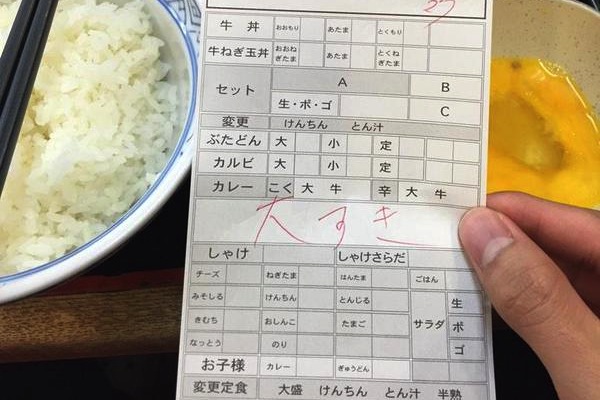 牛丼 おおもり あたま とくもり
牛ねぎ玉丼 おおねぎたま あたま とくねぎたま
セット A B
生・ボ・ゴ C
変更 けんちん とん汁
ぶたどん 大 小 定
カルビ 大 小 定
カレー こく 大 牛 辛 大 牛
大すき
しゃけ しゃけさらだ
チーズ ねぎたま はんたま ごはん
みそしる けんちん とんじる サラダ 生
きむち おしんこ たまご ポ
なっとう のり ゴ
お子様 カレー ぎゅうどん
変更定食 大盛 けんちん とん汁 半熟